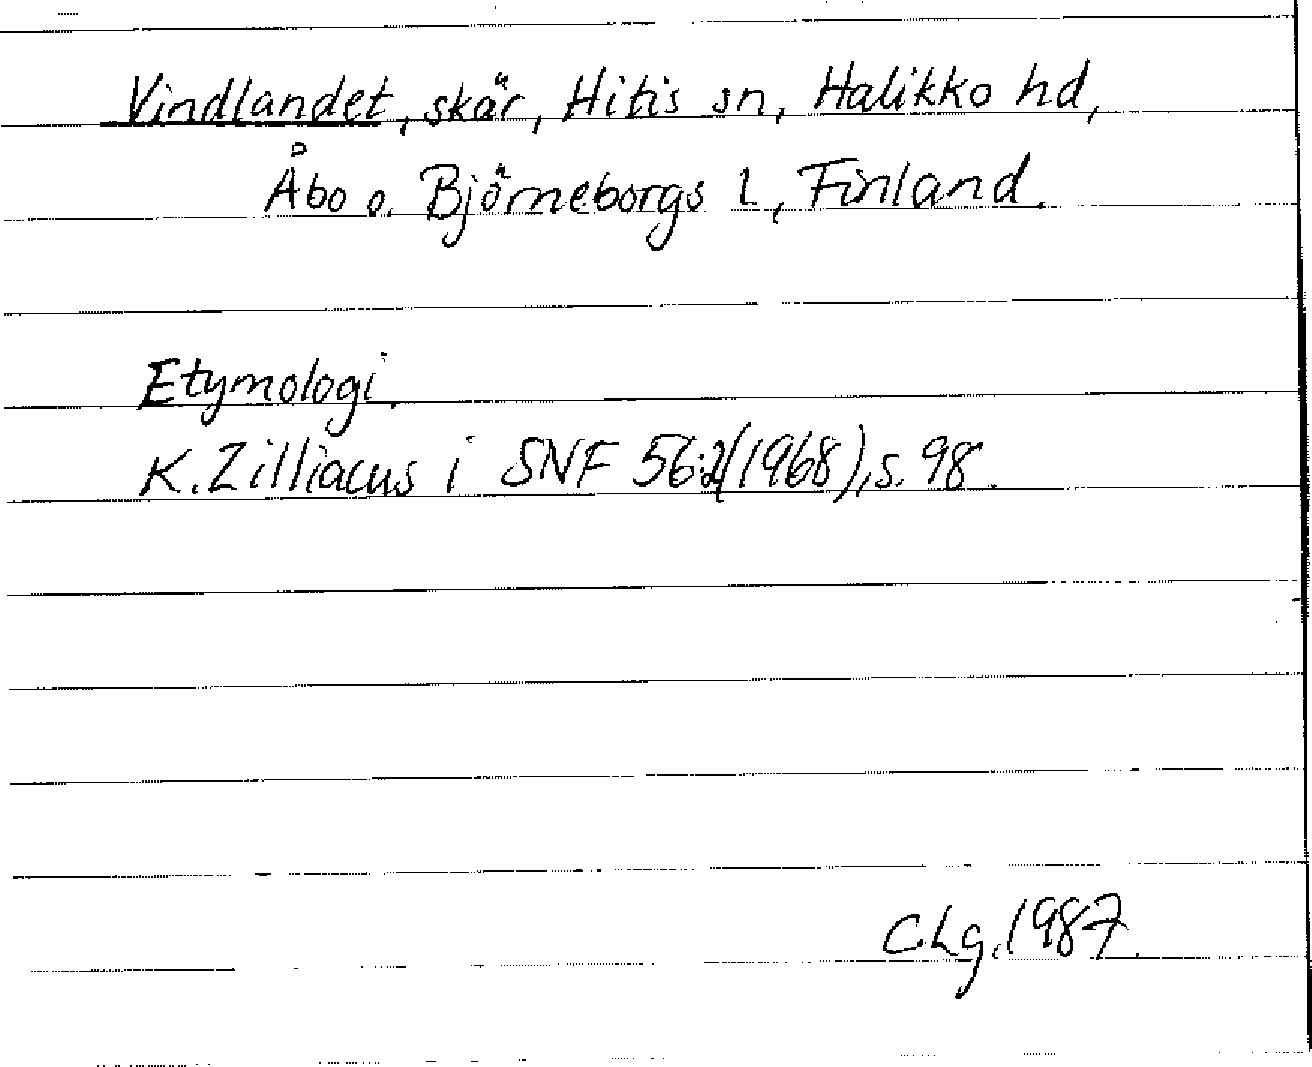 Vindlandet, skär, Hitis sn, Halikko hd,
Åbo o. Björneborgs l, Finland.
Etymologi.
K. Zilliacus i SNF 56:2(1968), s. 98.
C.Lg. 1987.